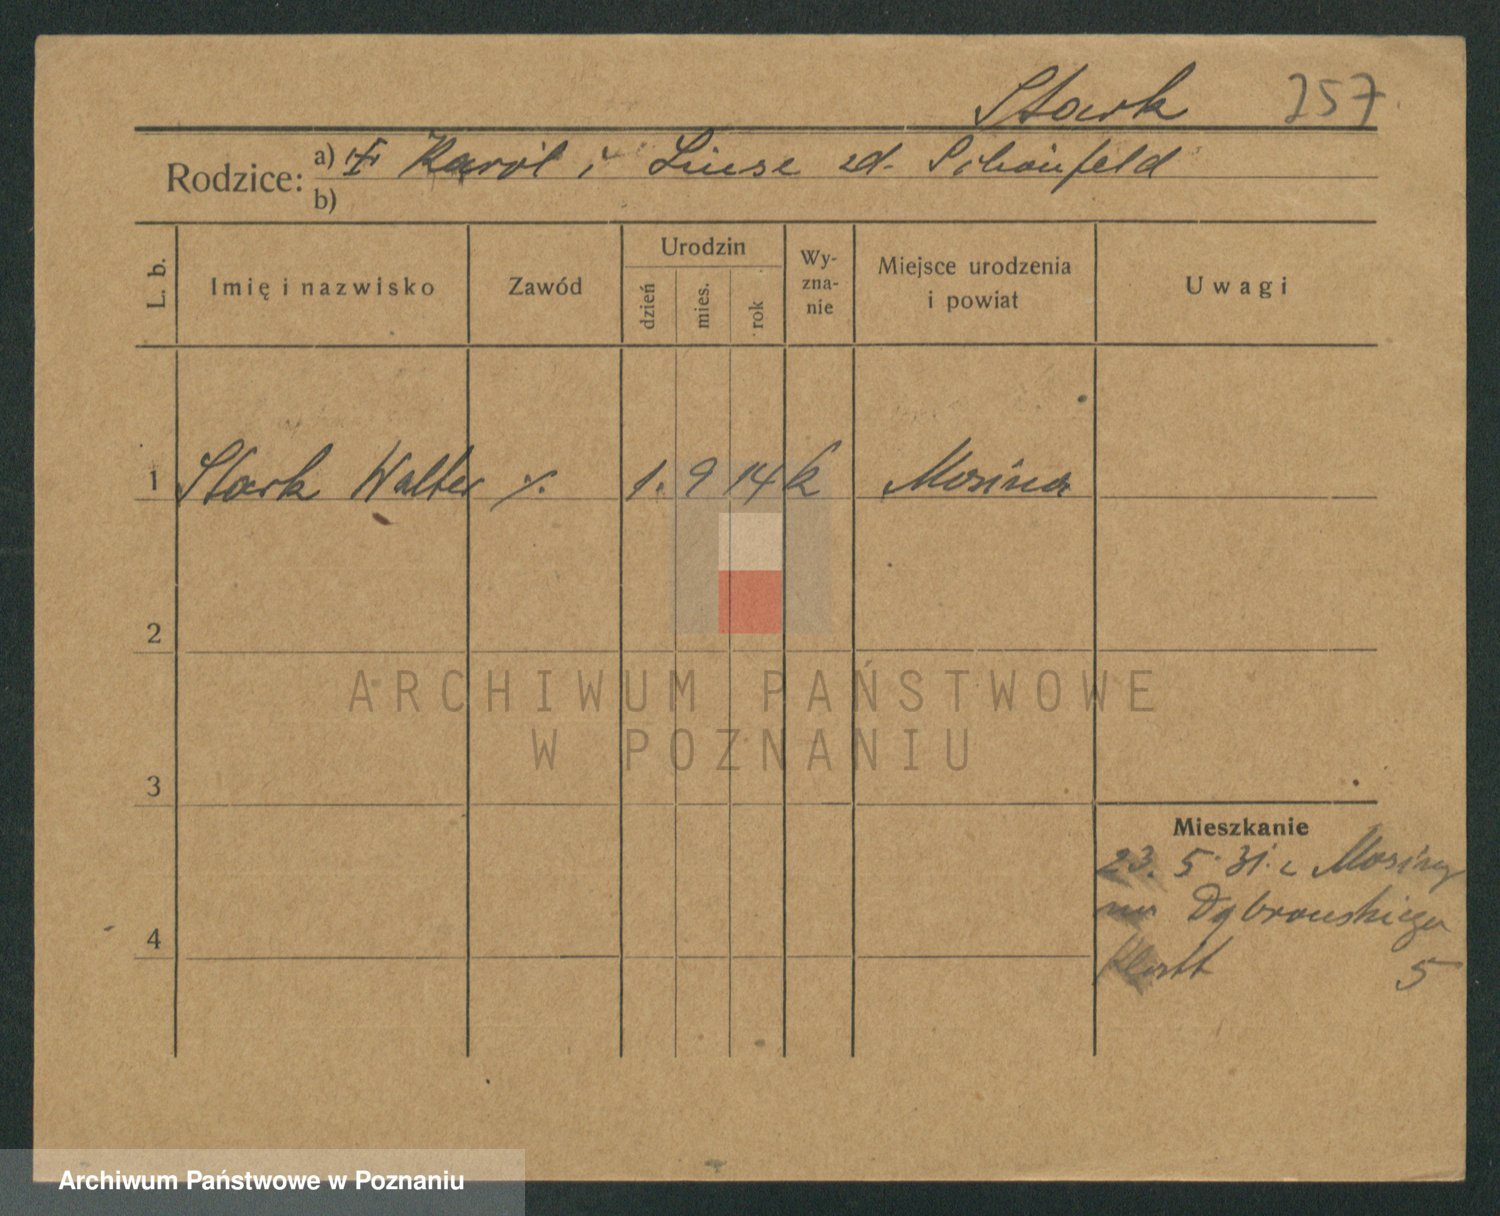 Stark 257
Rodzice: a) Karol i Luise zd. Schönfeld
b)
L. b. Imię i nazwisko Zawód Urodzin dzień mies. rok Wy-zna-nie Miejsce urodzenia i powiat Uwagi
1 Stark Walter ·/. 1. 9 14 k Mosina
2
ARCHIWUM PAŃSTWOWE
W POZNANIU
3
Mieszkanie
23. 5. 31. z Mosiny
na Dąbrowskiego
4
5
Archiwum Państwowe w Poznaniu